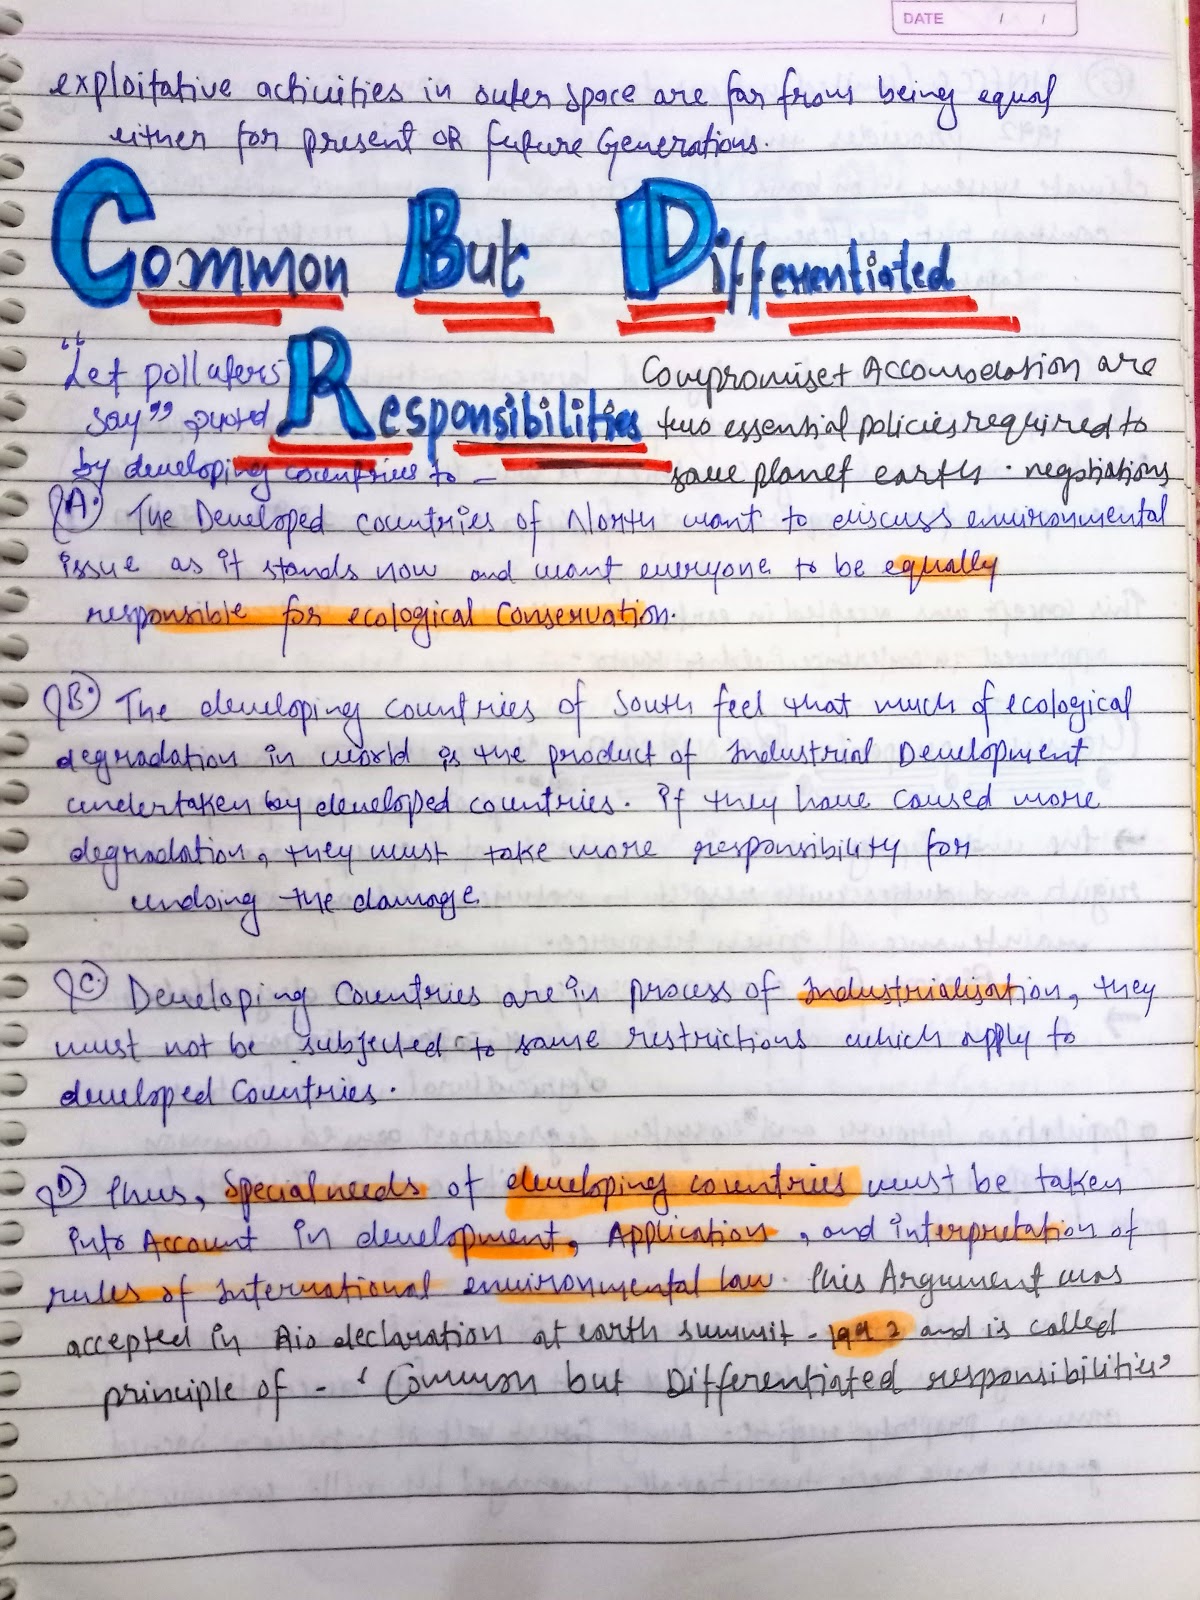 DATE / /
exploitative activities in outer space are far from being equal
either for present OR future Generations.
Common But Differentiated
Responsibilities
"Let polluters
Say" quoted
by developing countries to -
Compromise + Accomodation are
two essential policies required to
save planet earth. negotiations
(A.) The Developed countries of North want to discuss environmental
issue as it stands now and want everyone to be equally
responsible for ecological Conservation.
(B.) The developing countries of South feel that much of ecological
degradation in world is the product of Industrial Development
undertaken by developed countries. If they have caused more
degradation, they must take more responsibility for
undoing the damage.
(C.) Developing Countries are in process of Industrialisation, they
must not be subjected to same restrictions which apply to
developed Countries.
(D) Thus, Special needs of developing countries must be taken
into Account in development, Application, and interpretation of
rules of International environmental law. This Argument was
accepted in Rio declaration at earth summit - 1992 and is called
principle of - 'Common but Differentiated responsibilities'